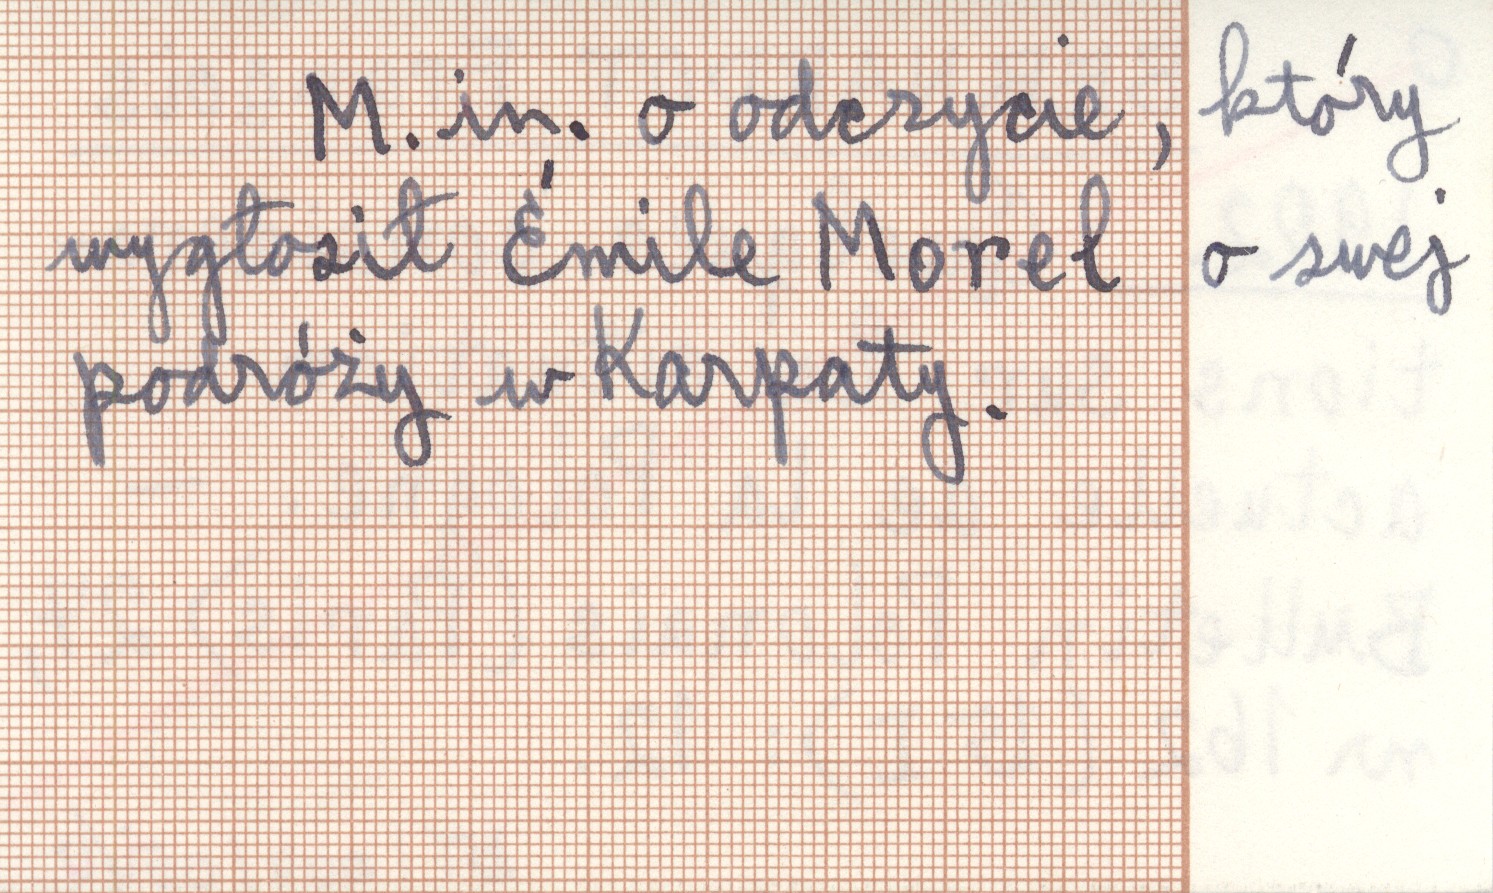 M. in. o odczycie, który
wygłosił Émile Morel o swej
podróży w Karpaty.